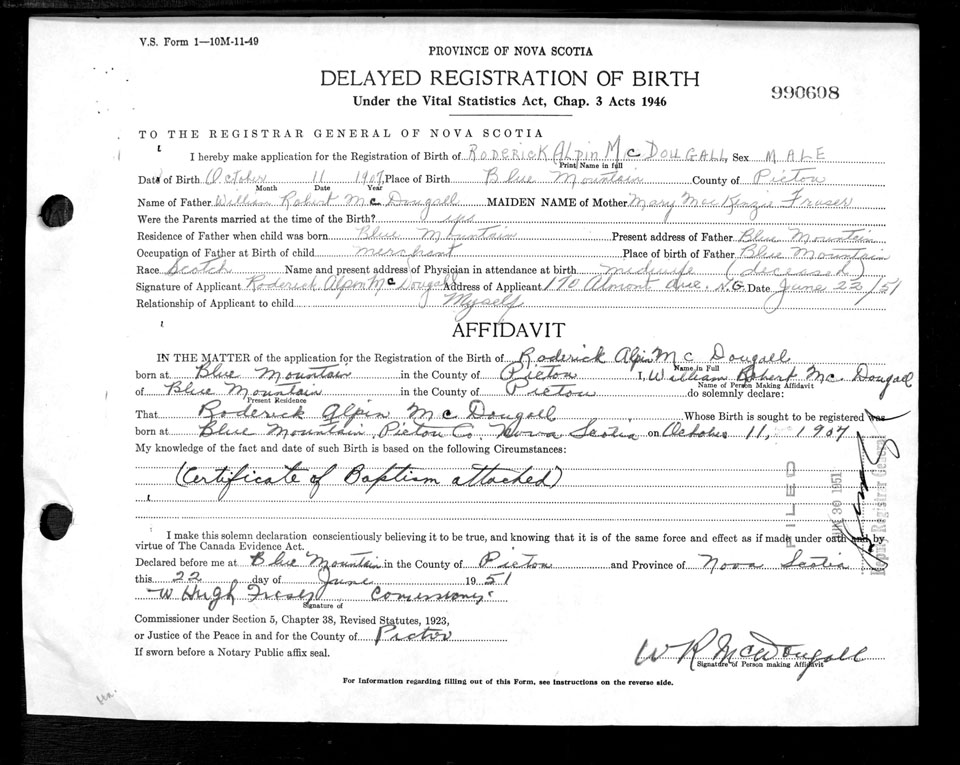 V.S. Form 1—10M-11-49
PROVINCE OF NOVA SCOTIA
DELAYED REGISTRATION OF BIRTH
990608
Under the Vital Statistics Act, Chap. 3 Acts 1946
TO THE REGISTRAR GENERAL OF NOVA SCOTIA
I hereby make application for the Registration of Birth of RODERICK Alpin McDOUGALL, Sex MALE
Print Name in full
Date of Birth October 11 1907 Place of Birth Blue Mountain County of Pictou
Month Date Year
Name of Father William Robert McDougall MAIDEN NAME of Mother Mary MacKenzie Fraser
Were the Parents married at the time of the Birth? yes
Residence of Father when child was born Blue Mountain Present address of Father Blue Mountain
Occupation of Father at Birth of child merchant Place of birth of Father Blue Mountain
Race Scotch Name and present address of Physician in attendance at birth midwife (deceased)
Signature of Applicant Roderick Alpin McDougall Address of Applicant 170 Almont Ave. N.G. Date June 22/51
Relationship of Applicant to child Myself
AFFIDAVIT
IN THE MATTER of the application for the Registration of the Birth of Roderick Alpin McDougall
Name in Full
born at Blue Mountain in the County of Pictou I, William Robert McDougall
Name of Person Making Affidavit
of Blue Mountain in the County of Pictou do solemnly declare:
Present Residence
That Roderick Alpin McDougall Whose Birth is sought to be registered was
born at Blue Mountain, Pictou Co., Nova Scotia on October 11, 1907
My knowledge of the fact and date of such Birth is based on the following Circumstances:
(Certificate of Baptism attached)
FILED
30 1951
Deputy Registrar General
I make this solemn declaration conscientiously believing it to be true, and knowing that it is of the same force and effect as if made under oath and by
virtue of The Canada Evidence Act.
Declared before me at Blue Mountain in the County of Pictou and Province of Nova Scotia
this 22 day of June 1951
W Hugh Fraser
Signature of
Commissioner under Section 5, Chapter 38, Revised Statutes, 1923,
or Justice of the Peace in and for the County of Pictou
If sworn before a Notary Public affix seal.
W R McDougall
Signature of Person making Affidavit
For Information regarding filling out of this Form, see Instructions on the reverse side.